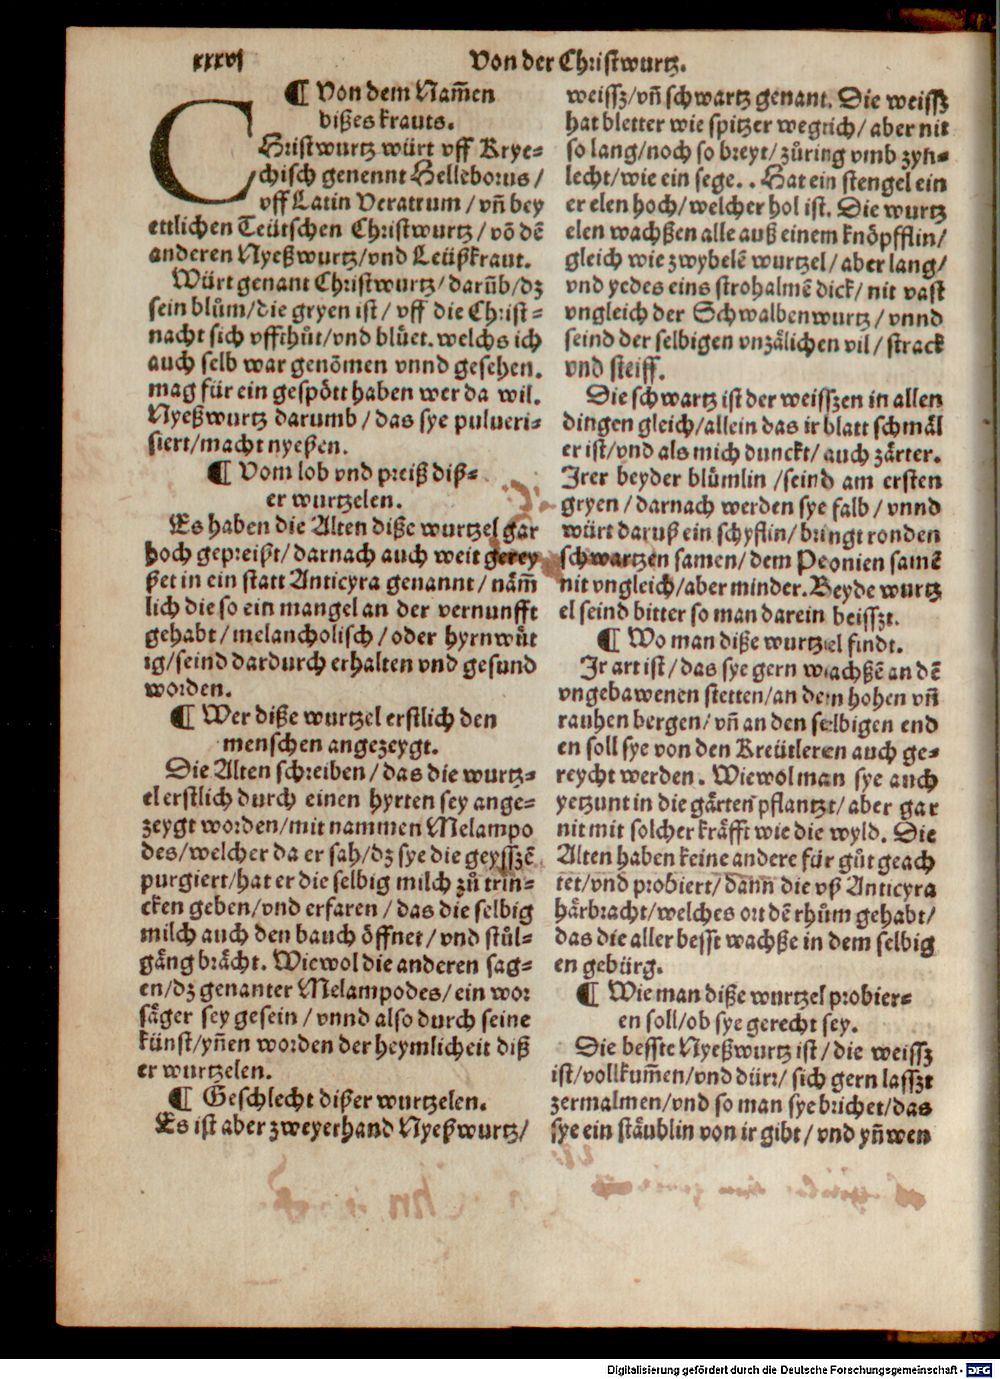 xxxvj
Von der Christwurtz.
¶ Von dem Nam̃en
dißes krauts.
CHristwurtz würt vff Krye⸗
chisch genennt Helleborus /
vff Latin Veratrum / vñ bey
ettlichen Teütschen Christwurtz / võ dẽ
anderen Nyeßwurtz/vnd Leüßkraut.
Würt genant Christwurtz/ darũb/dz
sein blům/die gryen ist / vff die Christ⸗
nacht sich vffthůt/vnd blůet. welchs ich
auch selb war genõmen vnnd gesehen.
mag für ein gespött haben wer da wil.
Nyeßwurtz darumb / das sye pulueri⸗
siert/macht nyeßen.
¶ Vom lob vnd preiß diß⸗
er wurtzelen.
Es haben die Alten diße wurtzel gar
hoch gepreißt/ darnach auch weit gerey
ßet in ein statt Anticyra genannt / näm̃
lich die so ein mangel an der vernunfft
gehabt / melancholisch / oder hyrnwůt
ig/seind dardurch erhalten vnd gesund
worden.
¶ Wer diße wurtzel erstlich den
menschen angezeygt.
Die Alten schreiben / das die wurtz⸗
el erstlich durch einen hyrten sey ange⸗
zeygt worden/mit nammen Melampo
des/welcher da er sah/dz sye die geysszẽ
purgiert/hat er die selbig milch zů trin⸗
cken geben/vnd erfaren / das die selbig
milch auch den bauch öffnet / vnd stůl⸗
gäng brächt. Wiewol die anderen sag⸗
en/dz genanter Melampodes/ ein wor
säger sey gesein / vnnd also durch seine
künst/yñen worden der heymlicheit diß
er wurtzelen.
¶ Geschlecht dißer wurtzelen.
Es ist aber zweyerhand Nyeßwurtz/
weissz/vñ schwartz genant. Die weissz
hat bletter wie spitzer wegrich/ aber nit
so lang/noch so breyt/ zůring vmb zyn⸗
lecht/wie ein sege. . Hat ein stengel ein
er elen hoch/welcher hol ist. Die wurtz
elen wachßen alle auß einem knöpfflin/
gleich wie zwybelẽ wurtzel/ aber lang/
vnd yedes eins strohalmẽ dick/ nit vast
vngleich der Schwalbenwurtz / vnnd
seind der selbigen vnzälichen vil/ strack
vnd steiff.
Die schwartz ist der weisszen in allen
dingen gleich/allein das ir blatt schmäl
er ist/vnd als mich dunckt/ auch zärter.
Irer beyder blůmlin /seind am ersten
gryen / darnach werden sye falb / vnnd
würt daruß ein schyflin/ bringt ronden
schwartzen samen/ dem Peonien samẽ
nit vngleich/aber minder. Beyde wurtz
el seind bitter so man darein beisszt.
¶ Wo man diße wurtzel findt.
Ir art ist / das sye gern wachßẽ an dẽ
vngebawenen stetten/an dem hohen vñ
rauhen bergen/ vñ an den selbigen end
en soll sye von den Kreütleren auch ge⸗
reycht werden. Wiewol man sye auch
yetzunt in die gärten pflantzt/ aber gar
nit mit solcher kräfft wie die wyld. Die
Alten haben keine andere für gůt geach
tet/vnd probiert/ dann die vß Anticyra
härbracht/welches ou dẽ rhům gehabt/
das die aller besst wachße in dem selbig
en gebürg.
¶ Wie man diße wurtzel probier⸗
en soll/ob sye gerecht sey.
Die besste Nyeßwurtz ist / die weissz
ist/vollkum̃en/vnd dürr/ sich gern lasszt
zermalmen/vnd so man sye brichet/das
sye ein stäublin von ir gibt / vnd yñwen
Digitalisierung gefördert durch die Deutsche Forschungsgemeinschaft - DFG